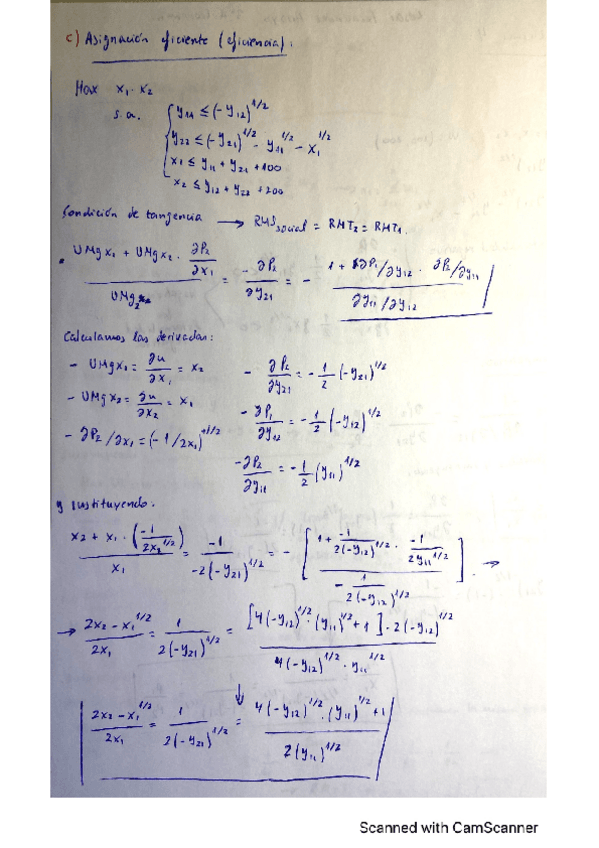 c) Asignación eficiente (eficiencia):
Max x₁ · x₂
s.a. { y₁₁ ≤ (-y₁₂)^1/2
y₂₂ ≤ (-y₂₁)^1/2 - y₁₁^1/2 - x₁^1/2
x₁ ≤ y₁₁ + y₂₁ + 100
x₂ ≤ y₁₂ + y₂₂ + 200
Condición de tangencia → RMS social = RMT₂ = RMT₁.
• (UMgx₁ + UMgx₂ · ∂P₂/∂x₁) / UMg x₂ = -∂P₂/∂y₂₁ = - (1 + ∂P₁/∂y₁₂ · ∂P₂/∂y₁₁) / (∂y₁₁/∂y₁₂)
Calculamos las derivadas:
- UMgx₁ = ∂u/∂x₁ = x₂ - ∂P₂/∂y₂₁ = -1/2 (-y₂₁)^1/2
- UMgx₂ = ∂u/∂x₂ = x₁ - ∂P₁/∂y₁₂ = -1/2 (-y₁₂)^1/2
- ∂P₂/∂x₁ = (-1/2x₁)^1/2 -∂P₂/∂y₁₁ = -1/2 (y₁₁)^1/2
y sustituyendo.
(x₂ + x₁ · (-1/2x₂^1/2)) / x₁ = -1 / -2(-y₂₁)^1/2 = - [(1 + -1/2(-y₁₂)^1/2 · -1/2y₁₁^1/2) / (-1/2(-y₁₂)^1/2)] . →
→ (2x₂ - x₁^1/2) / 2x₁ = 1 / 2(-y₂₁)^1/2 = ([4(-y₁₂)^1/2 · (y₁₁)^1/2 + 1] · 2(-y₁₂)^1/2) / (4(-y₁₂)^1/2 · y₁₁^1/2)
↓
(2x₂ - x₁^1/2) / 2x₁ = 1 / 2(-y₂₁)^1/2 = (4(-y₁₂)^1/2 · (y₁₁)^1/2 + 1) / 2(y₁₁)^1/2
Scanned with CamScanner